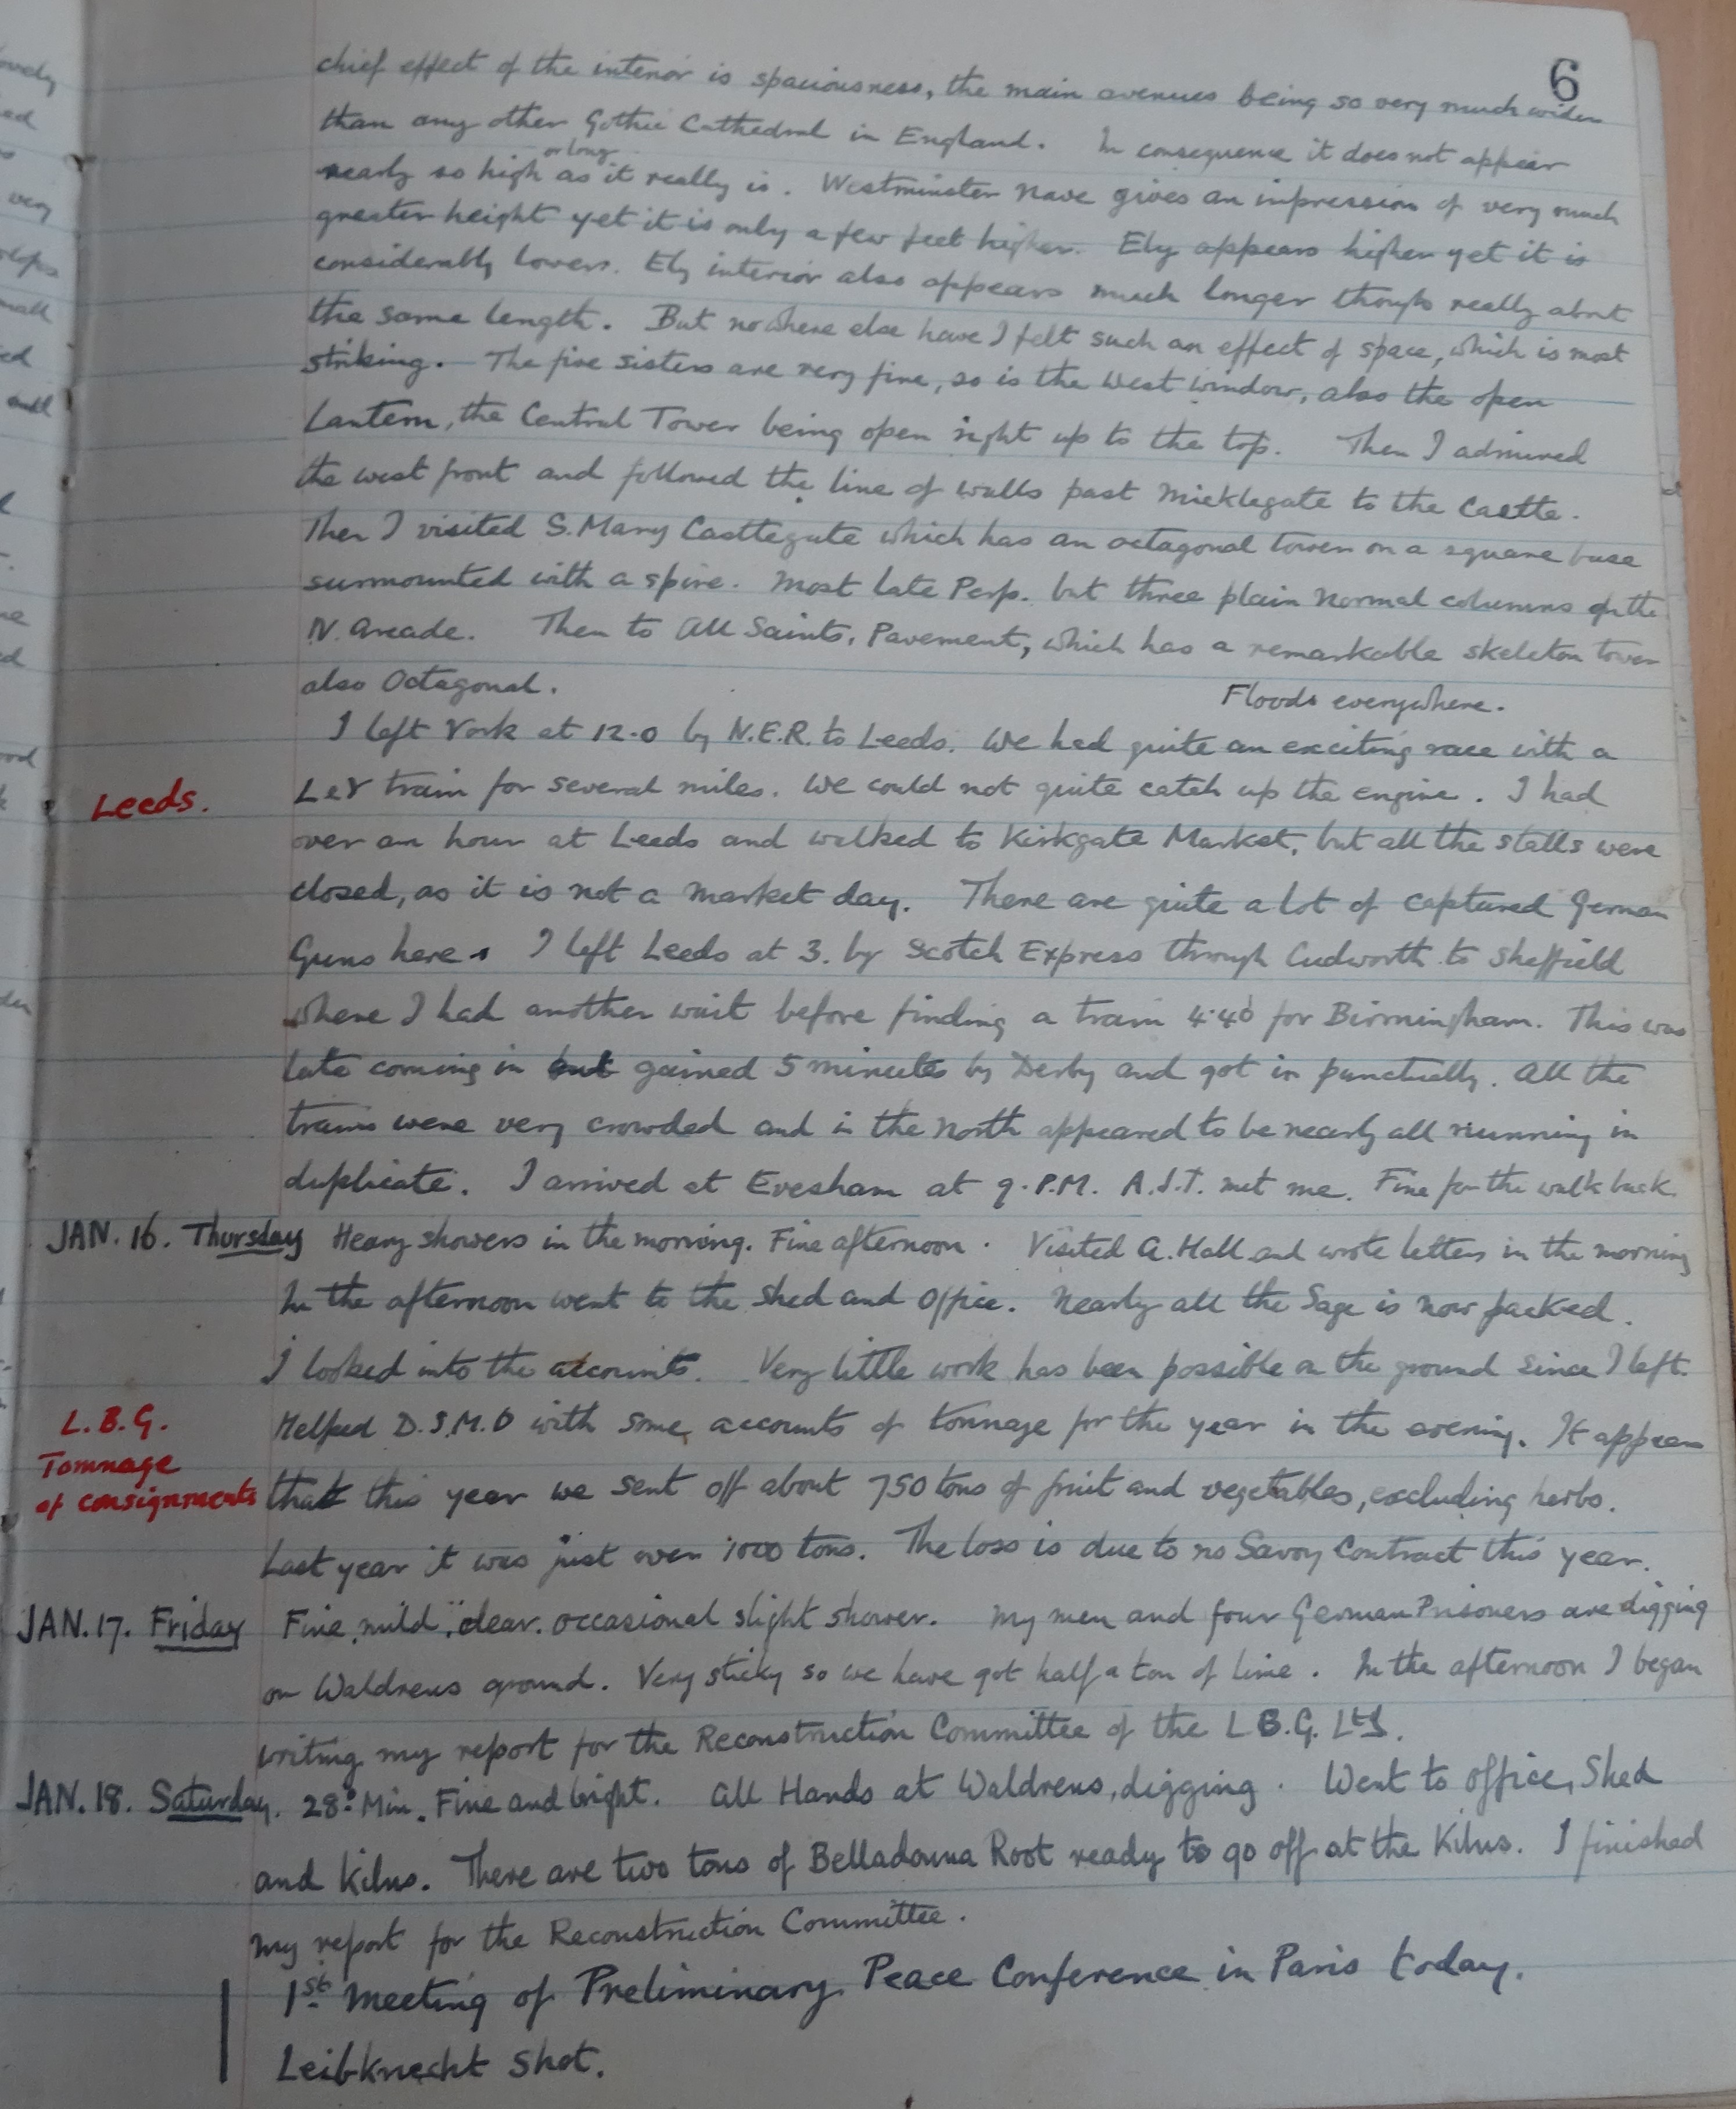 6
chief effect of the interior is spaciousness, the main avenues being so very much wider
than any other Gothic Cathedral in England. In consequence it does not appear
or long
nearly so high as it really is. Westminster nave gives an impression of very much
greater height yet it is only a few feet higher. Ely appears higher yet it is
considerably lower. Ely interior also appears much longer though really about
the same length. But nowhere else have I felt such an effect of space, which is most
striking. The five sisters are very fine, so is the West window, also the open
Lantern, the Central Tower being open right up to the top. Then I admired
the west front and followed the line of walls past Micklegate to the Castle.
Then I visited S. Mary Castlegate which has an octagonal tower on a square base
surmounted with a spire. Most late Perp. but three plain Normal columns of the
N. Arcade. Then to All Saints, Pavement, which has a remarkable skeleton tower
also Octagonal.
Floods everywhere.
I left York at 12.0 by N.E.R. to Leeds. We had quite an exciting race with a
Leeds.
L&Y train for several miles. We could not quite catch up the engine. I had
over an hour at Leeds and walked to Kirkgate Market, but all the stalls were
closed, as it is not a market day. There are quite a lot of captured German
Guns here. I left Leeds at 3. by Scotch Express through Cudworth to Sheffield
where I had another wait before finding a train 4.40 for Birmingham. This was
late coming in but gained 5 minutes by Derby and got in punctually. All the
trains were very crowded and in the north appeared to be nearly all running in
duplicate. I arrived at Evesham at 9.P.M. A.S.T. met me. Fine for the walk back.
JAN. 16. Thursday Heavy showers in the morning. Fine afternoon. Visited A. Hall and wrote letters in the morning
In the afternoon went to the shed and Office. Nearly all the Sage is now packed.
I looked into the accounts. Very little work has been possible on the ground since I left.
L.B.G.
Tonnage
of consignments
Helped D.S.M.O with some accounts of tonnage for the year in the evening. It appears
that this year we sent off about 750 tons of fruit and vegetables, excluding herbs.
Last year it was just over 1000 tons. The loss is due to no Savoy Contract this year.
JAN. 17. Friday Fine, mild, clear. occasional slight shower. My men and four German Prisoners are digging
on Waldrens ground. Very sticky so we have got half a ton of lime. In the afternoon I began
writing my report for the Reconstruction Committee of the L.B.G. Ltd.
JAN. 18. Saturday. 28° Min. Fine and bright. All Hands at Waldrens, digging. Went to office, Shed
and Kilns. There are two tons of Belladonna Root ready to go off at the Kilns. I finished
my report for the Reconstruction Committee.
1st Meeting of Preliminary Peace Conference in Paris today.
Leibknecht shot.